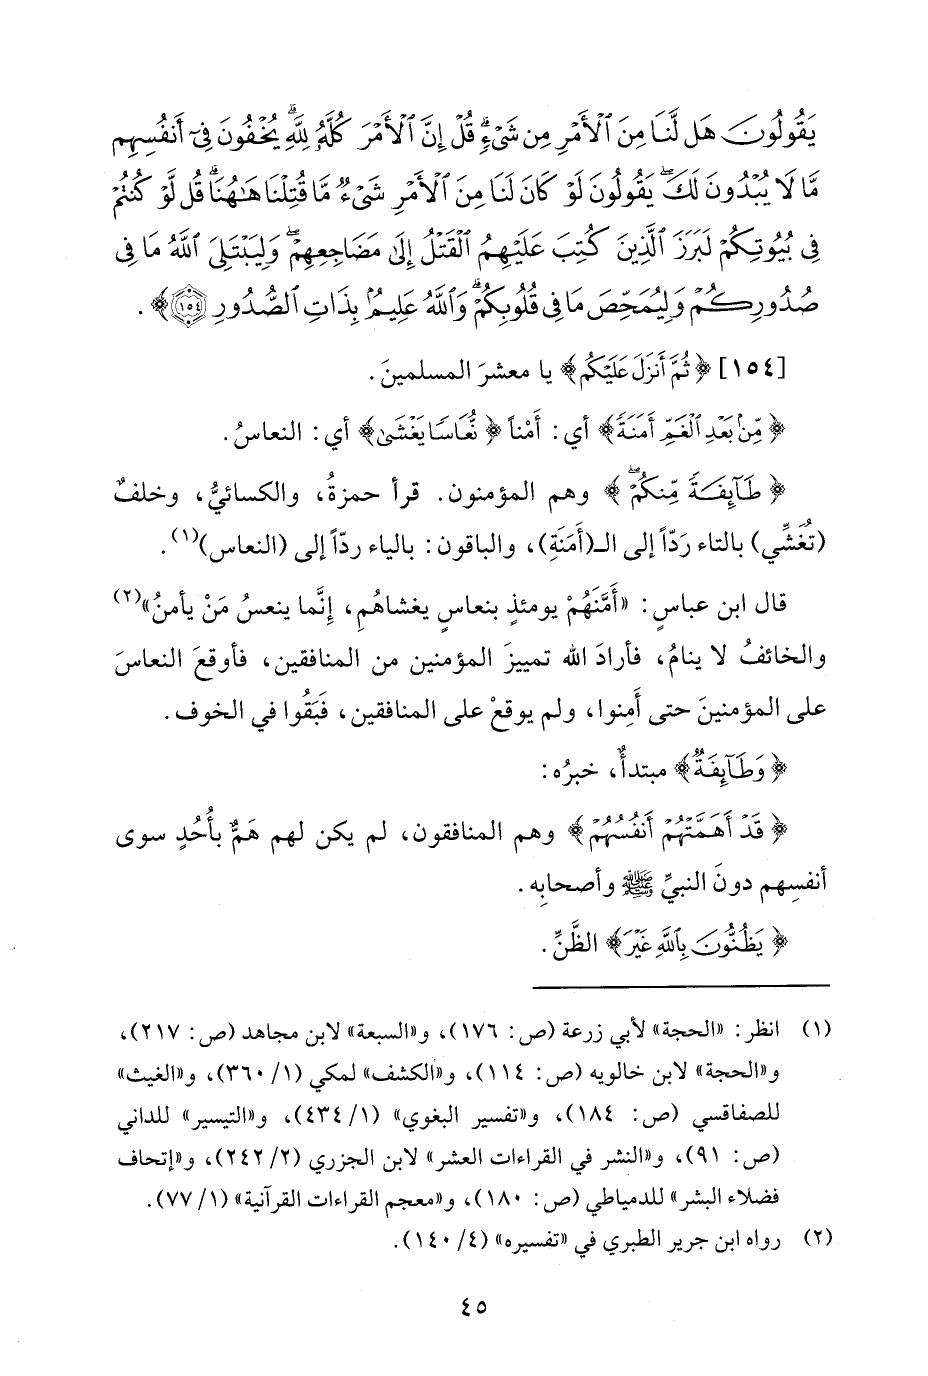 يَقُولُونَ هَل لَّنَا مِنَ ٱلْأَمْرِ مِن شَىْءٍۗ قُلْ إِنَّ ٱلْأَمْرَ كُلَّهُۥ لِلَّهِۗ يُخْفُونَ فِىٓ أَنفُسِهِم
مَّا لَا يُبْدُونَ لَكَۖ يَقُولُونَ لَوْ كَانَ لَنَا مِنَ ٱلْأَمْرِ شَىْءٌ مَّا قُتِلْنَا هَٰهُنَاۗ قُل لَّوْ كُنتُمْ
فِى بُيُوتِكُمْ لَبَرَزَ ٱلَّذِينَ كُتِبَ عَلَيْهِمُ ٱلْقَتْلُ إِلَىٰ مَضَاجِعِهِمْۖ وَلِيَبْتَلِىَ ٱللَّهُ مَا فِى
صُدُورِكُمْ وَلِيُمَحِّصَ مَا فِى قُلُوبِكُمْۗ وَٱللَّهُ عَلِيمٌۢ بِذَاتِ ٱلصُّدُورِ (١٥٤)﴾.
[١٥٤] ﴿ثُمَّ أَنزَلَ عَلَيْكُم﴾ يا معشرَ المسلمينَ.
﴿مِّنۢ بَعْدِ ٱلْغَمِّ أَمَنَةً﴾ أي: أَمْناً ﴿نُّعَاسًا يَغْشَىٰ﴾ أي: النعاسُ.
﴿طَآئِفَةً مِّنكُمْۖ﴾ وهم المؤمنون. قرأ حمزةُ، والكسائيُّ، وخلفٌ
(تُغَشِّي) بالتاء رَدّاً إلى الـ(أَمَنَةِ)، والباقون: بالياء ردّاً إلى (النعاس)(١).
قال ابن عباسٍ: «أَمَّنَهُمْ يومئذٍ بنعاسٍ يغشاهُمِ، إِنَّما ينعسُ مَنْ يأمنُ»(٢)
والخائفُ لا ينامُ، فأرادَ الله تمييزَ المؤمنين من المنافقين، فأوقعَ النعاسَ
على المؤمنينَ حتى أَمِنوا، ولم يوقعْ على المنافقين، فَبَقُوا في الخوف.
﴿وَطَآئِفَةٌ﴾ مبتدأٌ، خبرُه:
﴿قَدْ أَهَمَّتْهُمْ أَنفُسُهُمْ﴾ وهم المنافقون، لم يكن لهم هَمٌّ بأُحُدٍ سوى
أنفسِهم دونَ النبيِّ ﷺ وأصحابِه.
﴿يَظُنُّونَ بِٱللَّهِ غَيْرَ﴾ الظَّنِّ.
(١) انظر: «الحجة» لأبي زرعة (ص: ١٧٦)، و«السبعة» لابن مجاهد (ص: ٢١٧)،
و«الحجة» لابن خالويه (ص: ١١٤)، و«الكشف» لمكي (١/ ٣٦٠)، و«الغيث»
للصفاقسي (ص: ١٨٤)، و«تفسير البغوي» (١/ ٤٣٤)، و«التيسير» للداني
(ص: ٩١)، و«النشر في القراءات العشر» لابن الجزري (٢/ ٢٤٢)، و«إتحاف
فضلاء البشر» للدمياطي (ص: ١٨٠)، و«معجم القراءات القرآنية» (١/ ٧٧).
(٢) رواه ابن جرير الطبري في «تفسيره» (٤/ ١٤٠).
٤٥